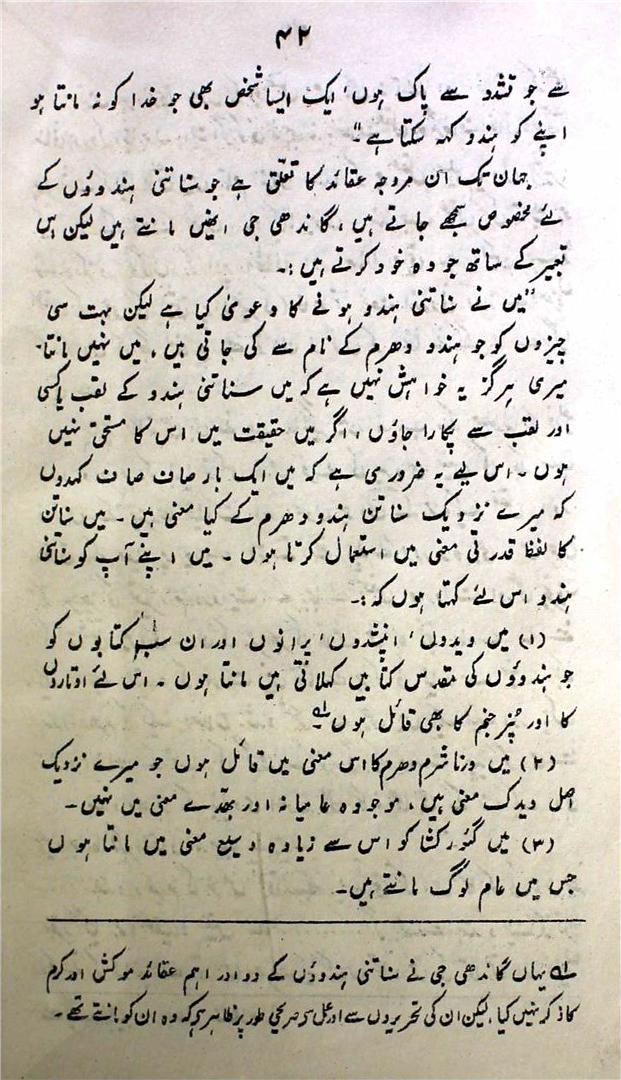 ۴۲
سے جو تشدد سے پاک ہوں، ایک ایسا شخص بھی جو خدا کو نہ مانتا ہو
اپنے کو ہندو کہہ سکتا ہے"۔
جہان تک ان مروجہ عقائد کا تعلق ہے جو سناتنی ہندوؤں کے
لئے مخصوص سمجھے جاتے ہیں، گاندھی جی انھیں مانتے ہیں لیکن اس
تعبیر کے ساتھ جو وہ خود کرتے ہیں:۔
"میں نے سناتنی ہندو ہونے کا دعویٰ کیا ہے لیکن بہت سی
چیزوں کو جو ہندو دھرم کے نام سے کی جاتی ہیں، میں نہیں مانتا۔
میری ہرگز یہ خواہش نہیں ہے کہ میں سناتنی ہندو کے لقب یا کسی
اور لقب سے پکارا جاؤں، اگر میں حقیقت میں اس کا مستحق نہیں
ہوں۔ اس لیے یہ ضروری ہے کہ میں ایک بار صاف صاف کہدوں
کہ میرے نزدیک سناتن ہندو دھرم کے کیا معنی ہیں۔ میں سناتن
کا لفظ قدرتی معنی میں استعمال کرتا ہوں۔ میں اپنے آپ کو سناتنی
ہندو اس لئے کہتا ہوں کہ:۔
(۱) میں ویدوں، اپنشدوں، پرانوں اور ان سب کتابوں کو
جو ہندوؤں کی مقدس کتابیں کہلاتی ہیں مانتا ہوں۔ اس لئے اوتاروں
کا اور پنر جنم کا بھی قائل ہوں لہ
(۲) میں ورنا شرم دھرم کا اس معنی میں قائل ہوں جو میرے نزدیک
اصل ویدک معنی ہیں، موجودہ عامیانہ اور بھدے معنی میں نہیں۔
(۳) میں گئورکشا کو اس سے زیادہ وسیع معنی میں مانتا ہوں
جس میں عام لوگ مانتے ہیں۔
لہ یہاں گاندھی جی نے سناتنی ہندوؤں کے دو اور اہم عقائد موکش اور کرم
کا ذکر نہیں کیا، لیکن ان کی تحریروں سے اور عمل سے صریحی طور پر ظاہر ہے کہ وہ ان کو مانتے تھے۔